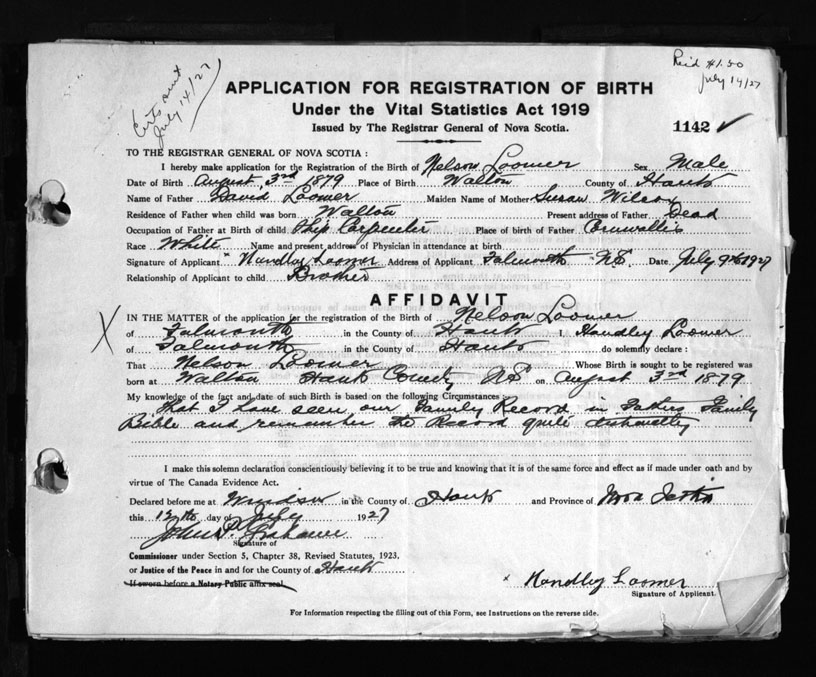 Certs sent
July 14/27
Rec'd $1.50
July 14/27
APPLICATION FOR REGISTRATION OF BIRTH
Under the Vital Statistics Act 1919
Issued by The Registrar General of Nova Scotia.
1142 ✓
TO THE REGISTRAR GENERAL OF NOVA SCOTIA :
I hereby make application for the Registration of the Birth of Nelson Loomer Sex Male
Date of Birth August 3rd 1879 Place of Birth Walton County of Hants
Name of Father David Loomer Maiden Name of Mother Susan Wilson
Residence of Father when child was born Walton Present address of Father Dead
Occupation of Father at Birth of child Ship Carpenter Place of birth of Father Cornwallis
Race White Name and present address of Physician in attendance at birth
Signature of Applicant x Handley Loomer Address of Applicant Falmouth N.S. Date July 9th 1927
Relationship of Applicant to child Brother
AFFIDAVIT
X IN THE MATTER of the application for the registration of the Birth of Nelson Loomer
of Falmouth in the County of Hants I Handley Loomer
of Falmouth in the County of Hants do solemnly declare :
That Nelson Loomer Whose Birth is sought to be registered was
born at Walton Hants County N.S. on August 3rd 1879
My knowledge of the fact and date of such Birth is based on the following Circumstances :
That I have seen our Family Record in Fathers Family
Bible and remember the Record quite distinctly
I make this solemn declaration conscientiously believing it to be true and knowing that it is of the same force and effect as if made under oath and by
virtue of The Canada Evidence Act.
Declared before me at Windsor in the County of Hants and Province of Nova Scotia
this 12th day of July 1927
John P. Grahame
Signature of
Commissioner under Section 5, Chapter 38, Revised Statutes, 1923.
or Justice of the Peace in and for the County of Hants
If sworn before a Notary Public affix seal.
x Handley Loomer
Signature of Applicant.
For Information respecting the filling out of this Form, see Instructions on the reverse side.